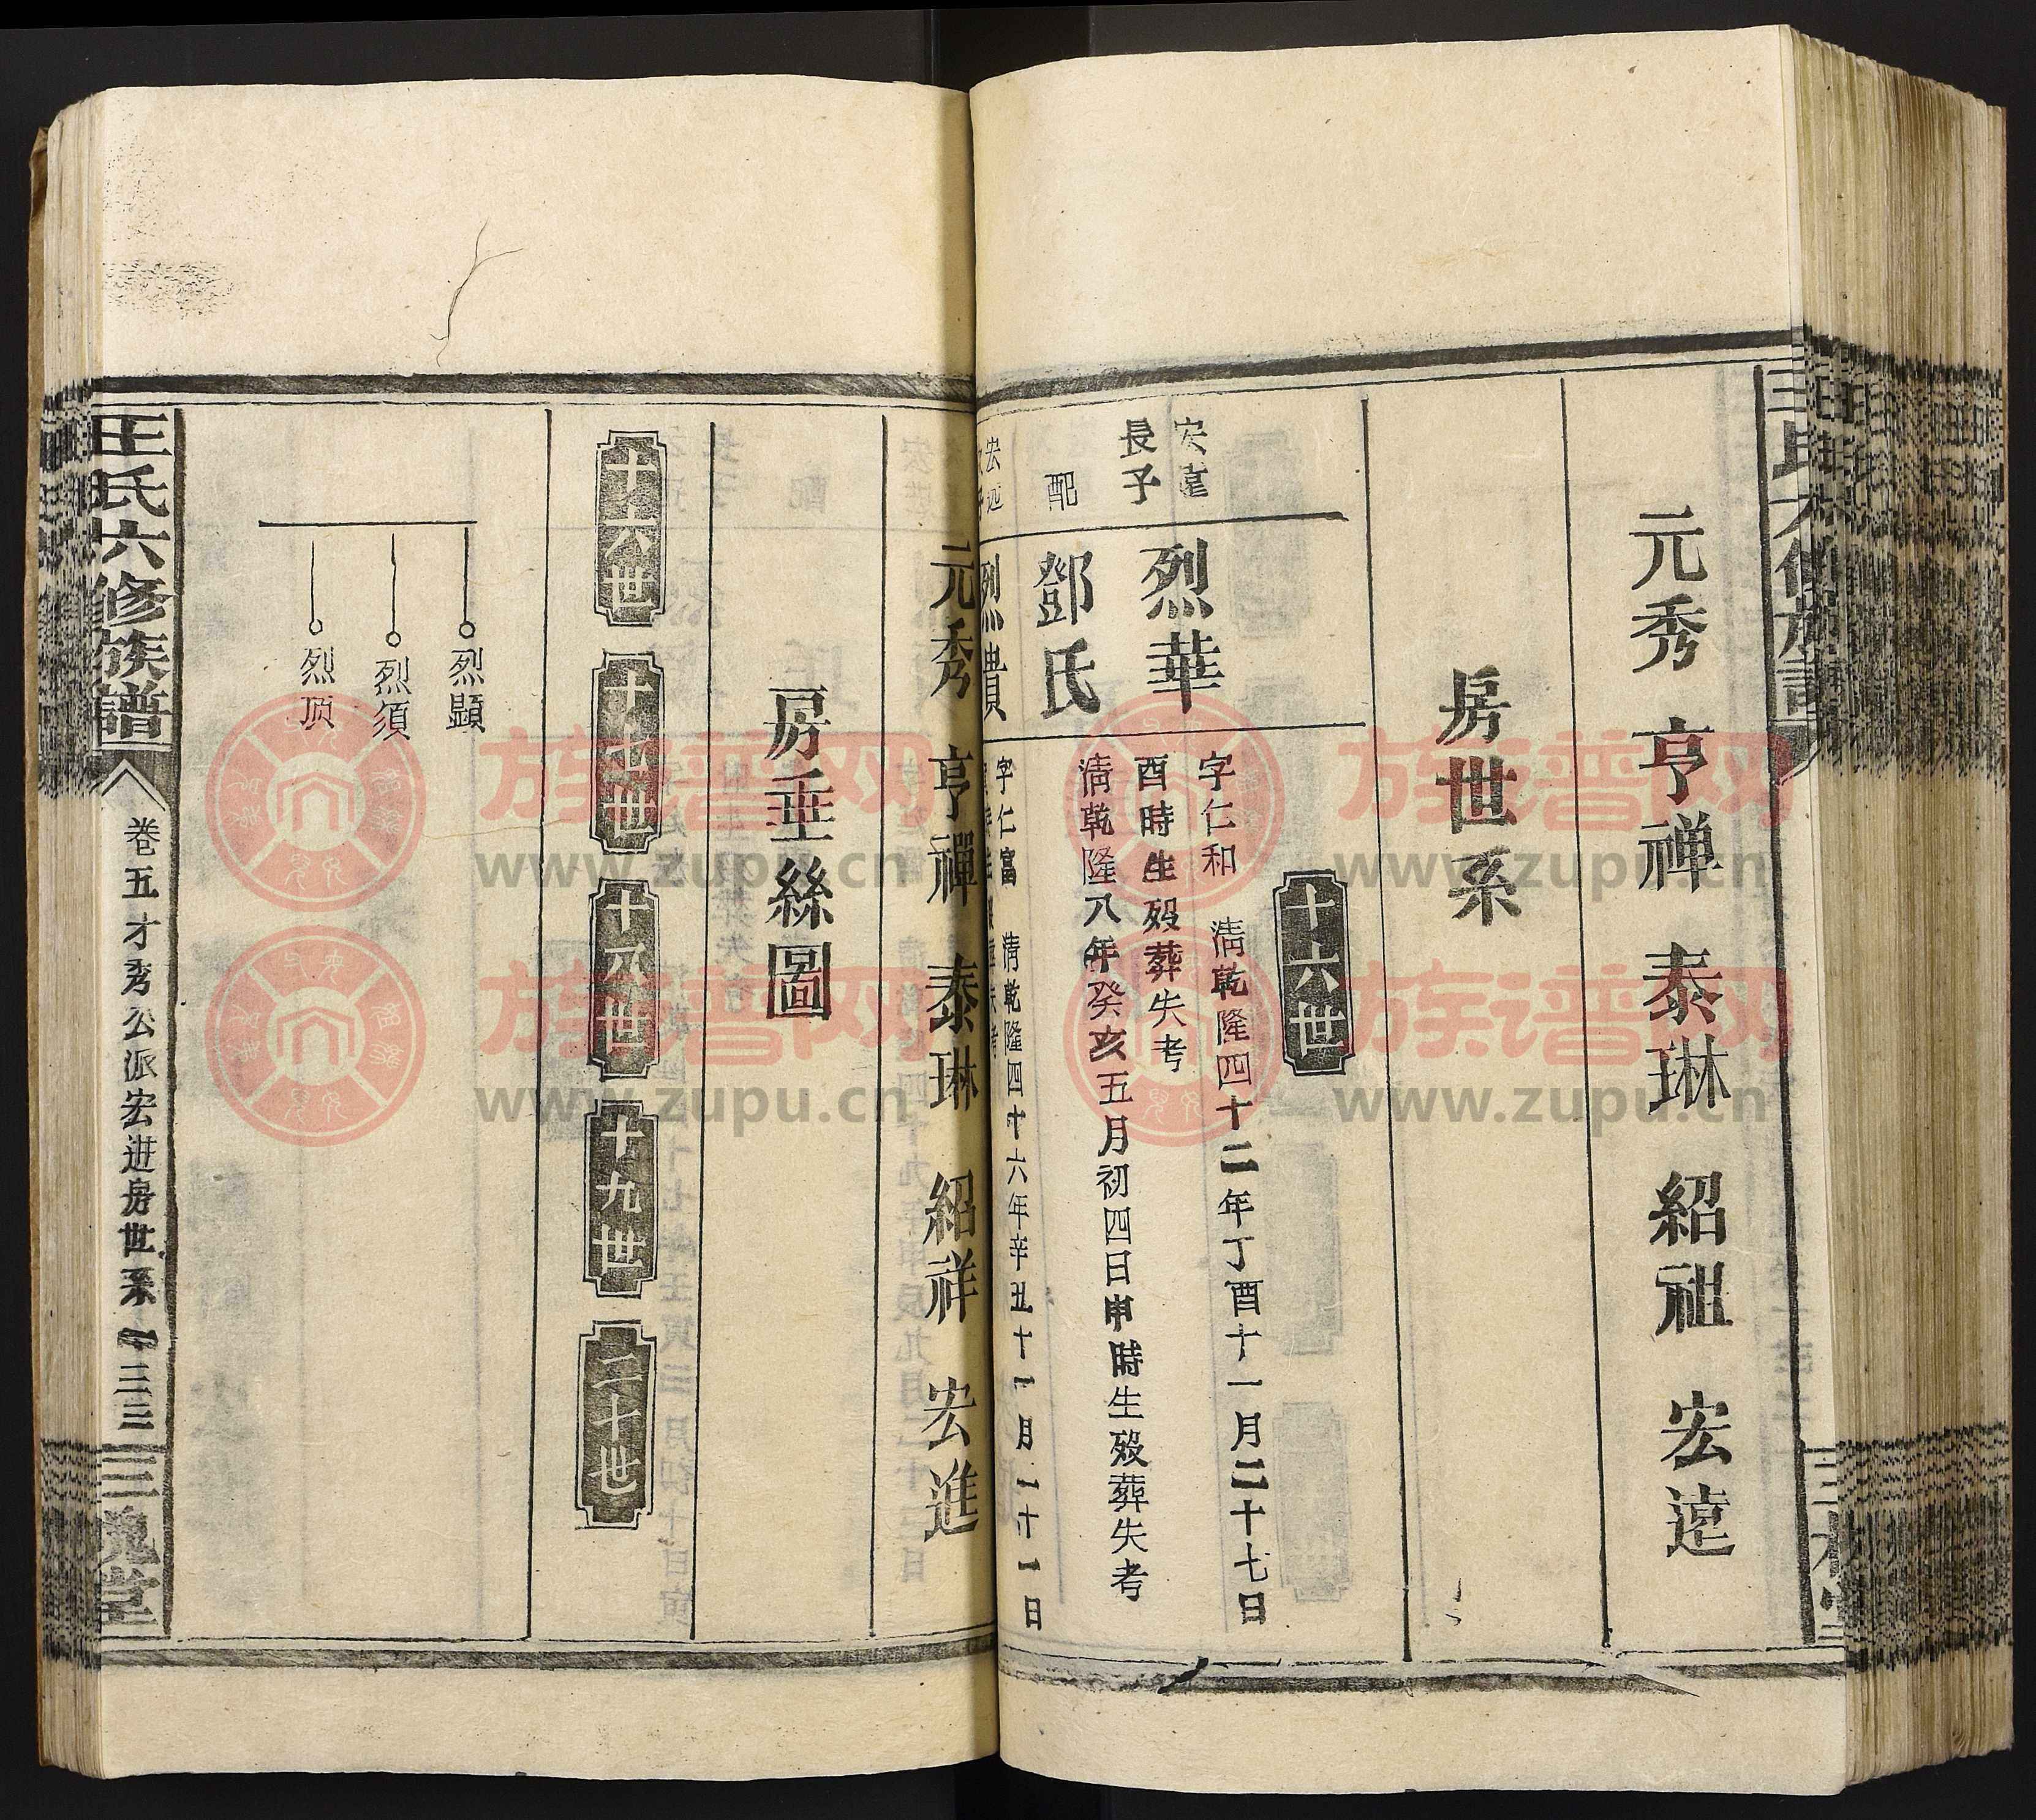 元秀 亨禅 泰琳 紹祖 宏遠
房世系
十六世
宏遠
長子
烈華
字仁和 清乾隆四十二年丁酉十一月二十七日
酉時生殁葬失考
配
鄧氏
清乾隆八年癸亥五月初四日申時生殁葬失考
宏远
烈貴
字仁富 清乾隆四十六年辛丑十一月二十一日
元秀 亨禪 泰琳 紹祥 宏進
房垂絲圖
十六世
十七世
十八世
十九世
二十世
烈顯
烈須
烈顶
王氏六修族譜
卷五才秀公派宏进房世系一三三
三槐堂
族谱网
www.zupu.cn
族谱网
www.zupu.cn
族谱网
www.zupu.cn
族谱网
www.zupu.cn